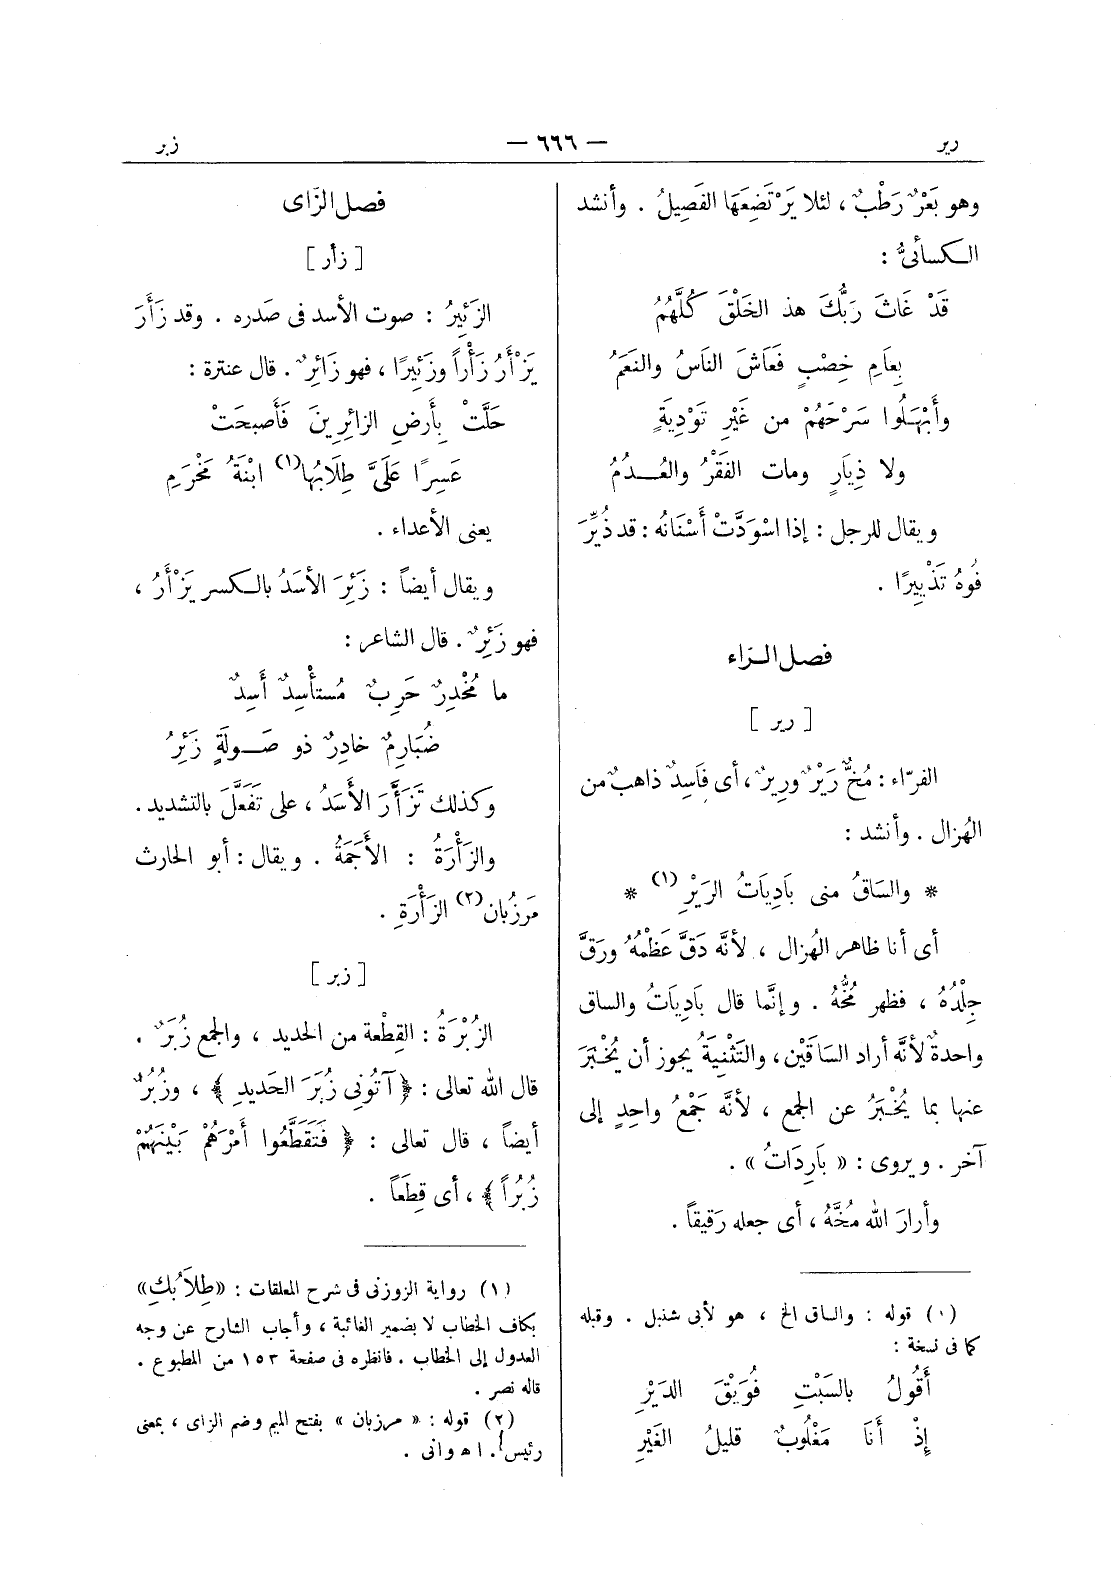 رير
— ٦٦٦ —
زبر
وهو بَعْرٌ رَطْبٌ ، لئلا يَرْتَضِعَهَا الفَصِيلُ . وأنشد
الكسائىُّ :
قَدْ غَاثَ رَبُّكَ هذ الخَلْقَ كُلَّهُمُ
بِعَامِ خِصْبٍ فَعَاشَ النَاسُ والنَعَمُ
وأَبْهَلُوا سَرْحَهُمْ من غَيْرِ تَوْدِيَةٍ
ولا ذِيَارٍ ومات الفَقْرُ والعُدُمُ
ويقال للرجل : إذا اسْوَدَّتْ أَسْنَانُه : قد ذُيِّرَ
فُوهُ تَذْيِيرًا .
فصل الراء
[ رير ]
الفرّاء : مُخٌّ رَيْرٌ ورِيرٌ ، أى فَاسِدٌ ذاهبٌ من
الهُزال . وأنشد :
* والسَاقُ منى بَادِيَاتُ الرَيْرِ (١) *
أى أنا ظاهر الهُزال ، لأنَّه دَقَّ عَظْمُهُ ورَقَّ
جِلْدُهُ ، فظهر مُخُّهُ . وإنَّما قال بَادِيَاتُ والساق
واحدةٌ لأنَّه أراد السَاقَيْن ، والتَثْنِيَةُ يجوز أن يُخْبَرَ
عنها بما يُخْبَرُ عن الجمع ، لأنَّه جَمْعُ واحِدٍ إلى
آخر . ويروى : « بَارِدَاتُ » .
وأرارَ الله مُخَّهُ ، أى جعله رَقيقاً .
(٠) قوله : والساق الخ ، هو لأبى شنبل . وقبله
كما فى نسخة :
أَقُولُ بالسَبْتِ فُوَيْقَ الدَيْرِ
إِذْ أَنَا مَغْلُوبٌ قليلُ الغَيْرِ
فصل الزَاى
[ زأر ]
الزَئِيرُ : صوت الأسد فى صَدره . وقد زَأَرَ
يَزْأَرُ زَأْراً وزَئِيرًا ، فهو زَائِرٌ . قال عنترة :
حَلَّتْ بِأَرضِ الزائِرِينَ فَأَصبحَتْ
عَسِرًا عَلَىَّ طِلَابُها(١) ابْنَةُ مَخْرَمِ
يعنى الأعداء .
ويقال أيضاً : زَئِرَ الأسَدُ بالكسر يَزْأَرُ ،
فهو زَئِرٌ . قال الشاعر :
ما مُخْدِرٌ حَرِبٌ مُستأْسِدٌ أَسِدٌ
ضُبَارِمٌ خادِرٌ ذو صَولَةٍ زَئِرُ
وكذلك تَزَأَّرَ الأسَدُ ، على تَفَعَّلَ بالتشديد .
والزَأْرَةُ : الأَجَمَةُ . ويقال : أبو الحارث
مَرزُبان(٢) الزَأْرَةِ .
[ زبر ]
الزُبْرَةُ : القِطْعة من الحديد ، والجمع زُبَرٌ .
قال الله تعالى : ﴿ آتُونِى زُبَرَ الحَديدِ ﴾ ، وزُبُرٌ
أيضاً ، قال تعالى : ﴿ فَتَقَطَّعُوا أمْرَهُمْ بَيْنَهُمْ
زُبُراً ﴾ ، أى قِطَعاً .
(١) رواية الزوزنى فى شرح المعلقات : «طِلَابُكِ»
بكاف الخطاب لا بضمير الغائبة ، وأجاب الشارح عن وجه
العدول إلى الخطاب . فانظره فى صفحة ١٥٣ من المطبوع .
قاله نصر .
(٢) قوله : « مرزبان » بفتح الميم وضم الزاى ، بمعنى
رئيس . اه وانى .